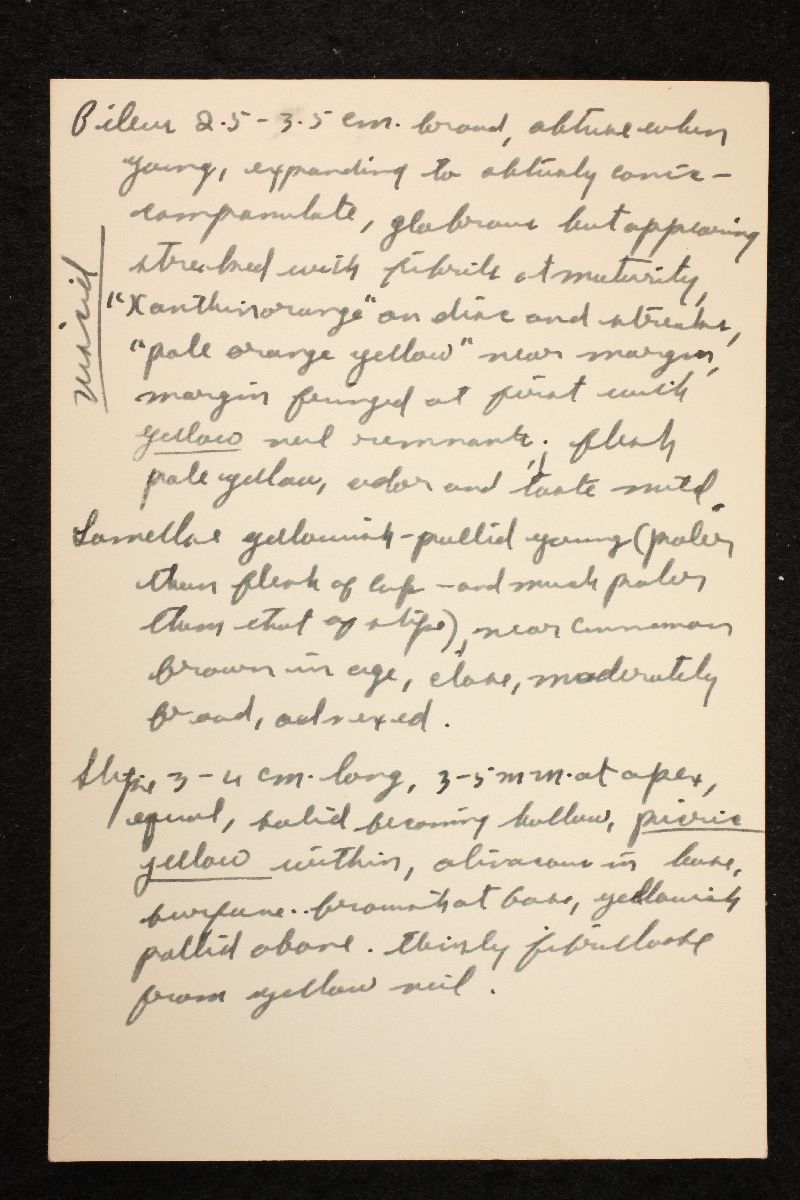 Pileus 2.5 - 3.5 cm. broad, obtuse when
young, expanding to obtusely conic-
campanulate, glabrous but appearing
streaked with fibrils at maturity,
viscid
"Xanthine orange" on disc and streaks,
"pale orange yellow" near margin,
margin fringed at first with
yellow veil remnants; flesh
pale yellow, odor and taste mild.
Lamellae yellowish-pallid young (paler
than flesh of cap - and much paler
than that of stipe), near cinnamon
brown in age, close, moderately
broad, adnexed.
Stipe 3 - 4 cm. long, 3-5 mm. at apex,
equal, solid becoming hollow, picric
yellow within, olivaceous in base,
surface.. brownish at base, yellowish
pallid above. thinly fibrillose
from yellow veil.